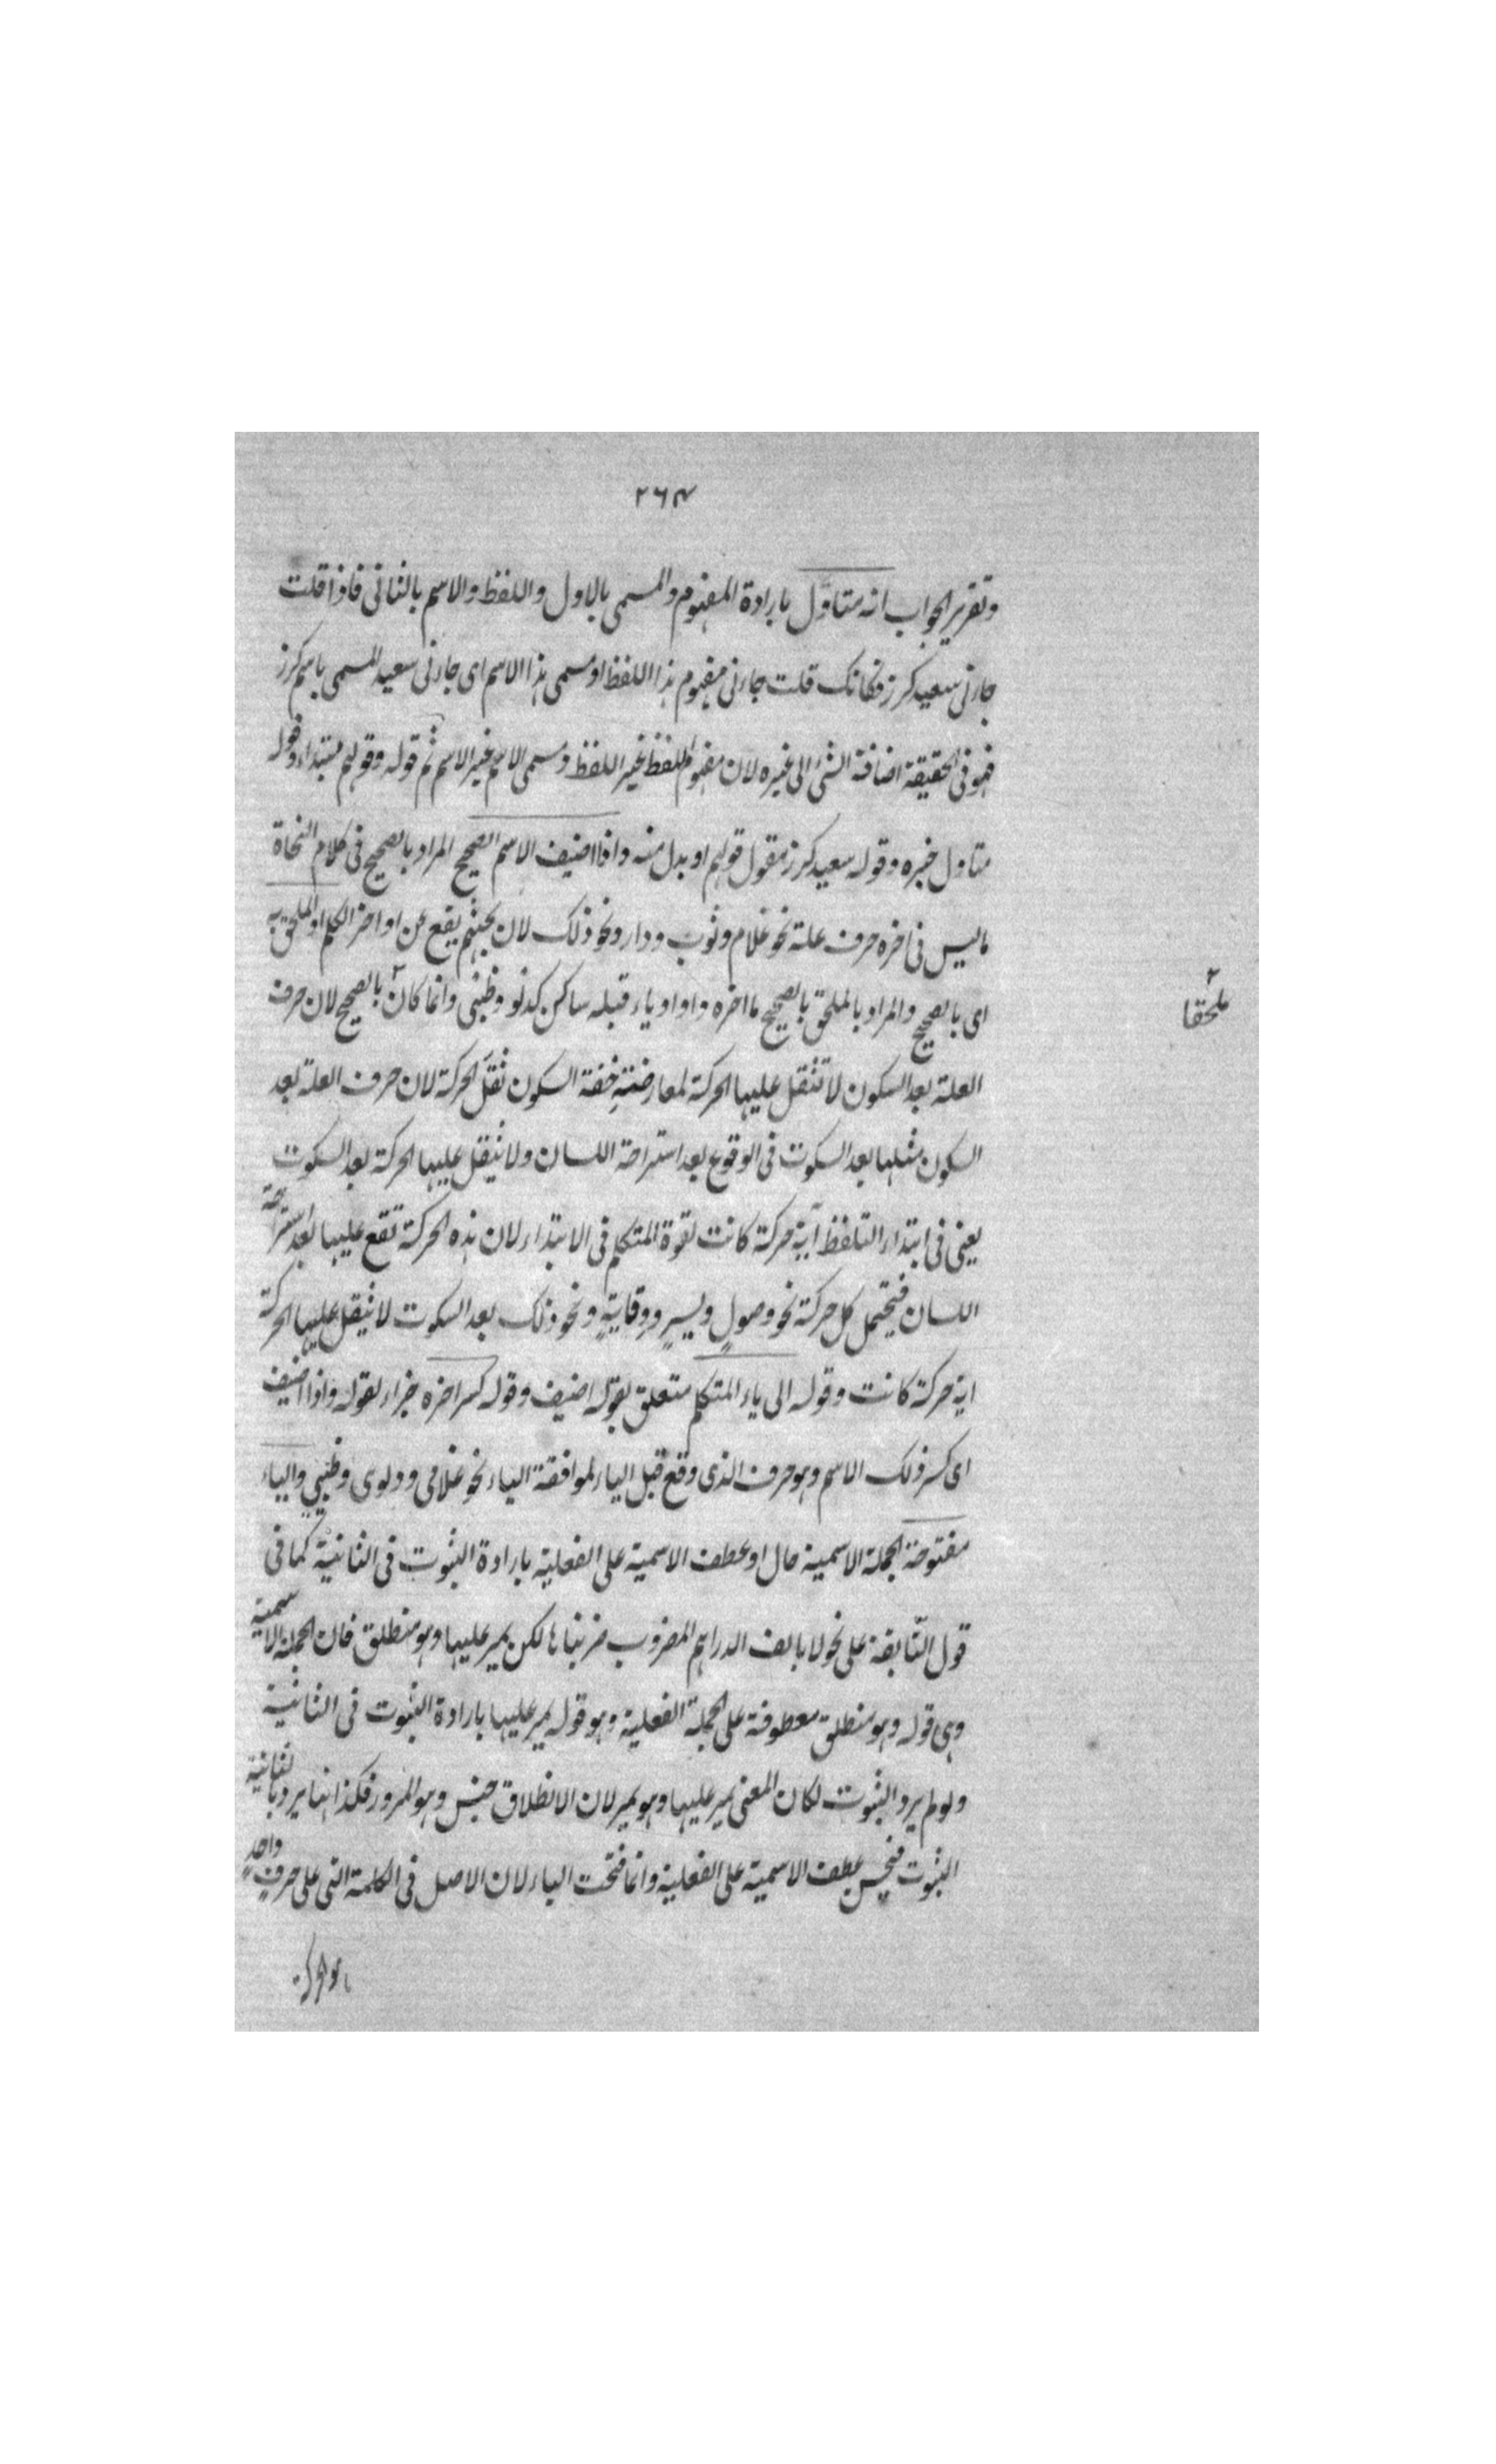 ٢٦٤
وتقرير الجواب انه متاوّل بارادة المفهوم والمسمى بالاول واللفظ والاسم بالثانى فاذا قلت
جاءنى سعيد كرز فكانك قلت جاءنى مفهوم هذا اللفظ او مسمى هذا الاسم اى جاءنى سعيد المسمى باسم كرز
فهو فى الحقيقة اضافة الشئ الى غيره لان مفهوم اللفظ غير اللفظ ومسمى الاسم غير الاسم ثم قوله وقولهم مبتداء وقوله
متاول خبره وقوله سعيد كرز مقول قولهم او بدل منه واذا اضيف الاسم الصحيح المراد بالصحيح فى كلام النحاة
ما ليس فى اخره حرف علة نحو غلام وثوب ودار ونحو ذلك لان بحثهم يقع عن اواخر الكلم او الملحق به
اى بالصحيح والمراد بالملحق بالصحيح ما اخره واو او ياء قبله ساكن كدلو وظبى وانما كان ٢ بالصحيح لان حرف
٢ ملحقا
العلة بعد السكون لا تثقل عليها الحركة لمعارضة خفة السكون ثقل الحركة لان حرف العلة بعد
السكون مثلها بعد السكوت فى الوقوع بعد استراحة اللسان ولا يثقل عليها الحركة بعد السكوت
يعنى فى ابتداء التلفظ اية حركة كانت لقوة المتكلم فى الابتداء لان هذه الحركة تقع عليها بعد استراحة
اللسان فيتحمل كل حركة نحو وصولٍ ويسيرٍ ووقايةٍ ونحو ذلك بعد السكوت لا يثقل عليها الحركة
اية حركة كانت وقوله الى ياء المتكلم متعلق بقوله اضيف وقوله كسر اخره جزاء لقوله واذا اضيف
اى كسر ذلك الاسم وهو حرف الذى وقع قبل الياء لموافقة الياء نحو غلامى ودلوى وظبيى والياء
مفتوحة الجملة الاسمية حال او عطف الاسمية على الفعلية بارادة الثبوت فى الثانية كما فى
قول النابغة على نحو لا يالف الدراهم المضروب ضربنا ها لكن يمر عليها وهو منطلق فان الجملة الاسمية
وهى قوله وهو منطلق معطوفة على الجملة الفعلية وهو قوله يمر عليها بارادة الثبوت فى الثانية
ولو لم يرد الثبوت لكان المعنى يمر عليها وهو يمر لان الانطلاق جنس وهو المرور فكذا هنا يرد بالثانية
الثبوت فيحسن عطف الاسمية على الفعلية وانما فتحت الياء لان الاصل فى الكلمة التى على حرفٍ واحدٍ
هو الحركة